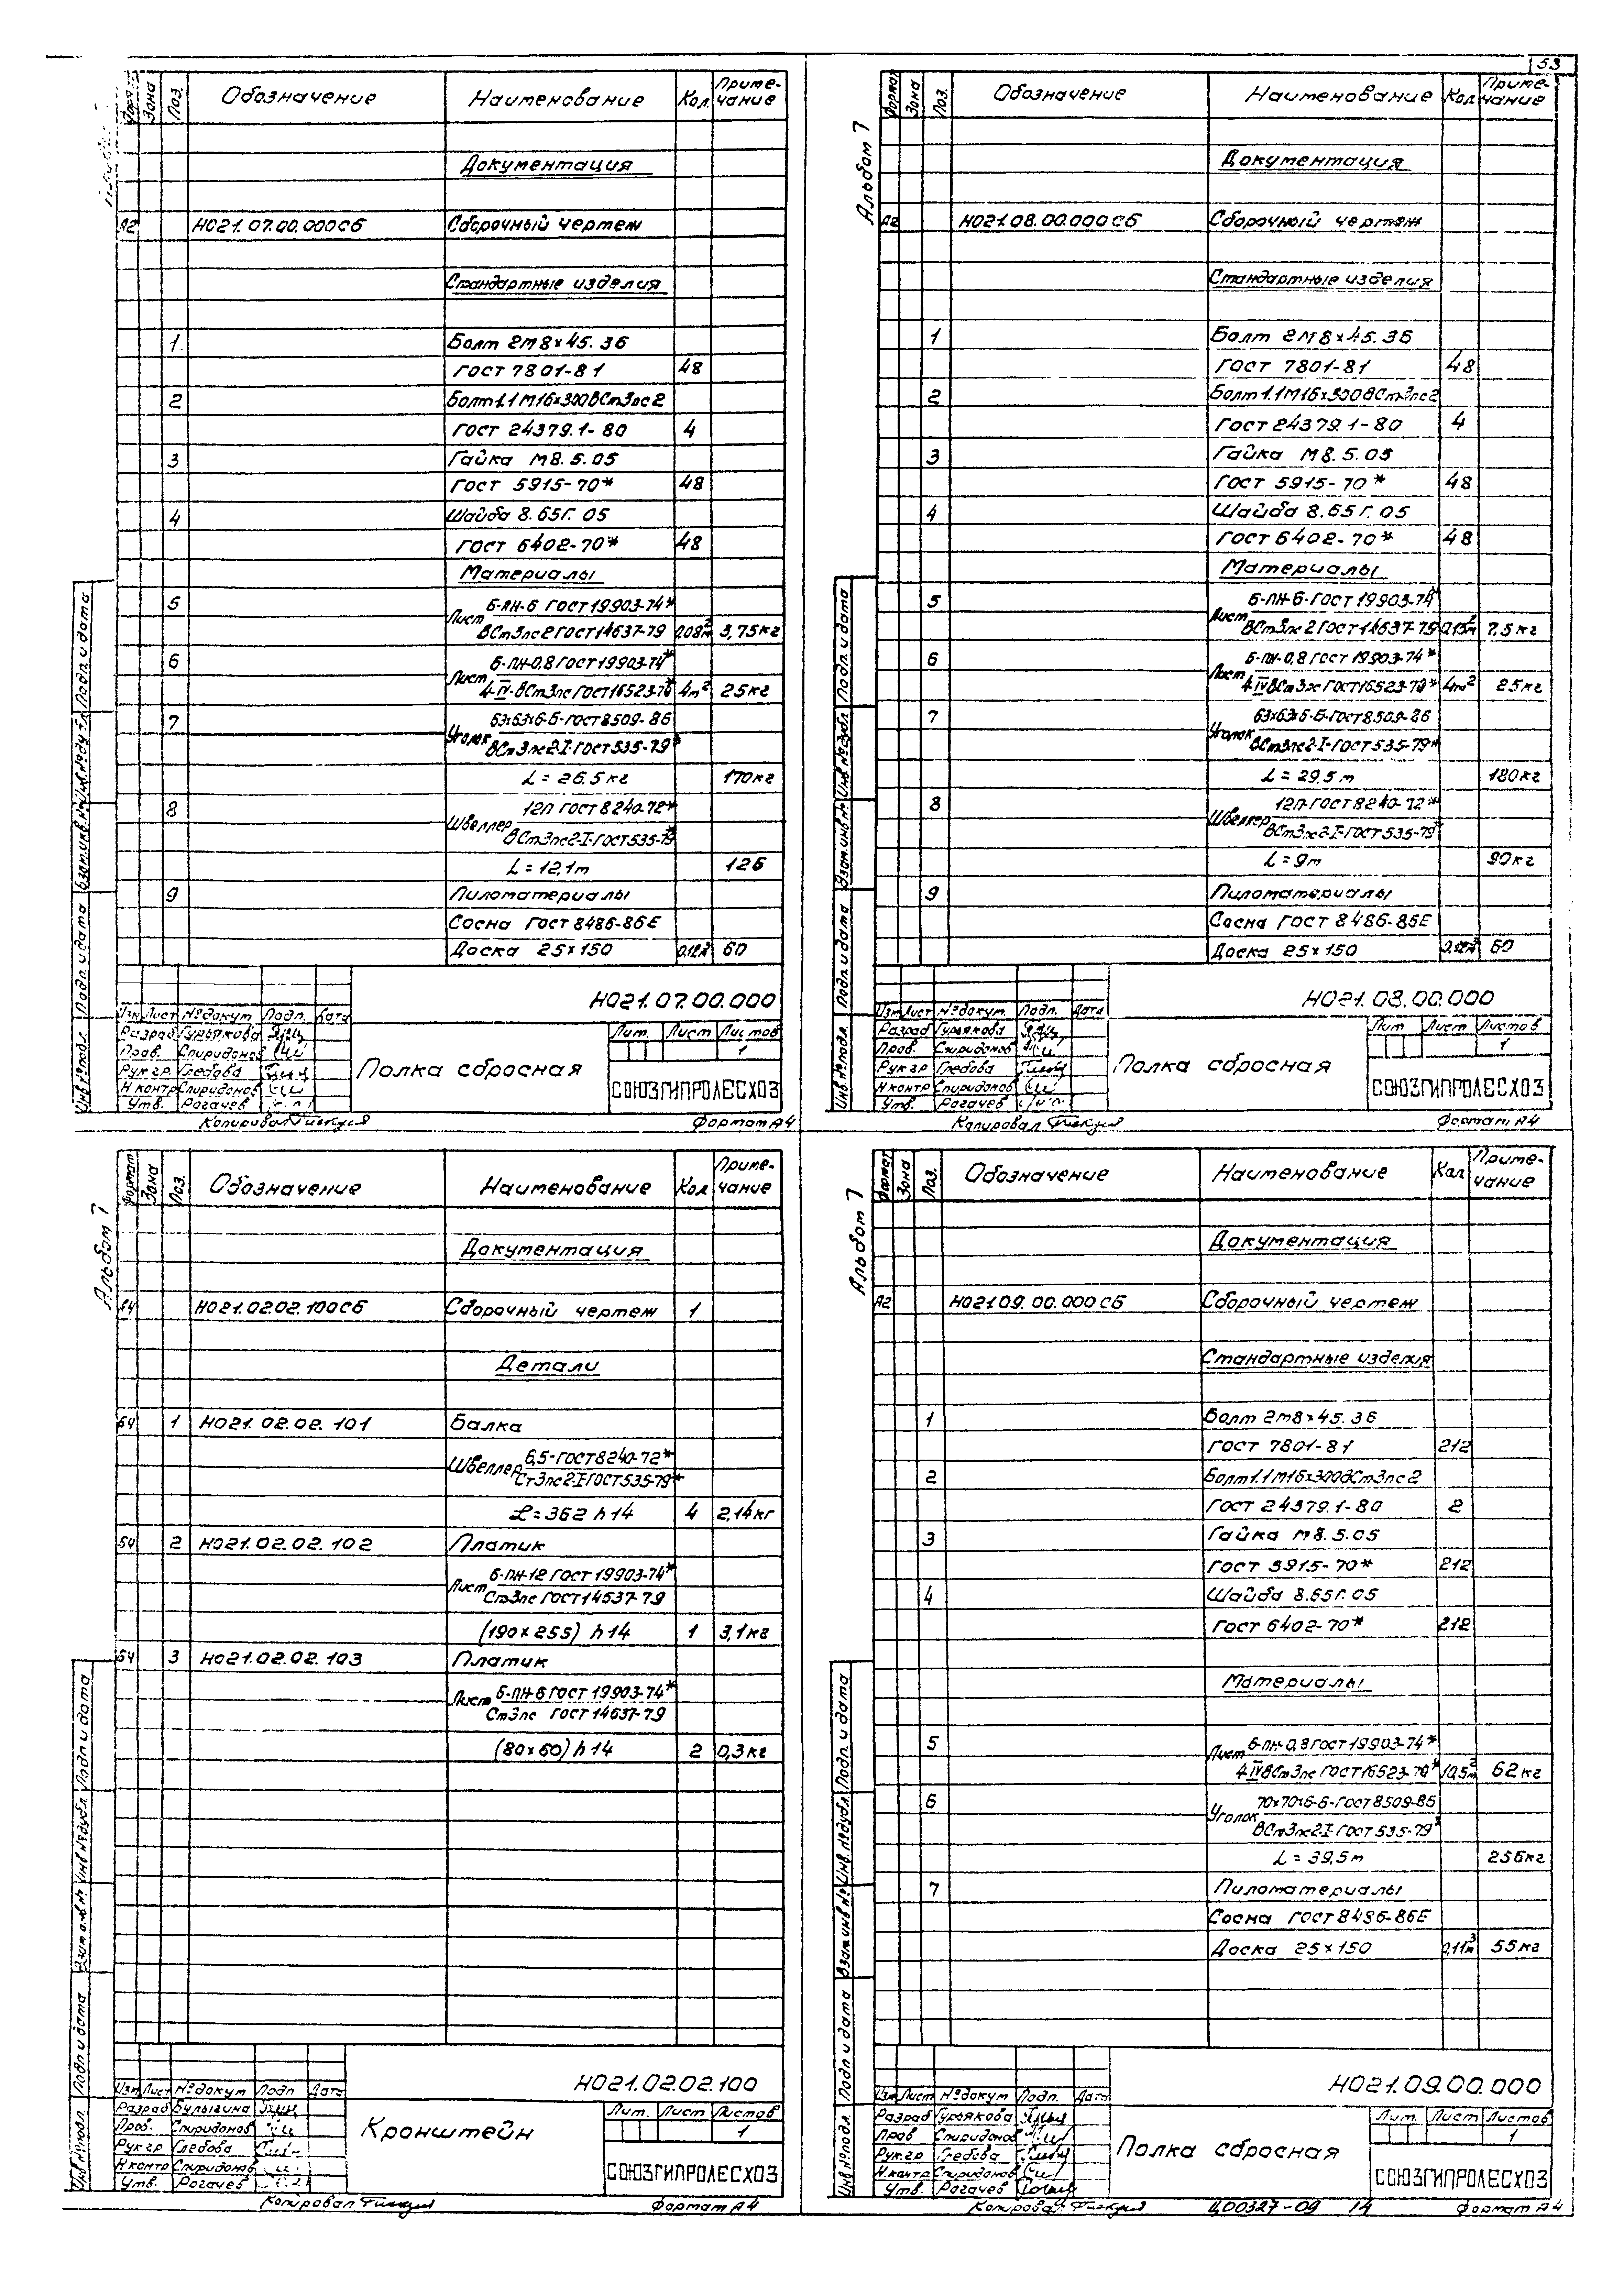 53
Формат Зона Поз. Обозначение Наименование Кол. Приме-чание
Документация
А2 НО21.07.00.000СБ Сборочный чертеж
Стандартные изделия
1 Болт 2М8×45.36
ГОСТ 7801-81 48
2 Болт1.1М16×300ВСт3пс2
ГОСТ 24379.1-80 4
3 Гайка М8.5.05
ГОСТ 5915-70* 48
4 Шайба 8.65Г.05
ГОСТ 6402-70* 48
Материалы
5 Лист Б-ПН-6 ГОСТ 19903-74*
ВСт3пс2 ГОСТ 14637-79 0,08м² 3,75кг
6 Лист Б-ПН-0,8 ГОСТ 19903-74*
4-IV-ВСт3пс ГОСТ 16523-70* 4м² 25кг
7 Уголок 63×63×6-Б-ГОСТ 8509-86
ВСт3пс2-I-ГОСТ 535-79*
L = 26,5кг 170кг
8 Швеллер 12П ГОСТ 8240-72*
ВСт3пс2-I-ГОСТ 535-79*
L = 12,1м 126
9 Пиломатериалы
Сосна ГОСТ 8486-86Е
Доска 25×150 0,12м³ 60
НО21.07.00.000
Изм Лист №докум Подп. Дата
Разраб Гурьякова
Пров. Спиридонов
Рук гр. Глебова
Н контр Спиридонов
Утв. Рогачев
Полка сбросная
Лит. Лист Листов
1
СОЮЗГИПРОЛЕСХОЗ
Копировал Формат А4
Инв № подл. Подп. и дата Взам. инв № Инв. № дубл Подп. и дата
Альбом 7
Формат Зона Поз. Обозначение Наименование Кол Приме-чание
Документация
А2 НО21.08.00.000СБ Сборочный чертеж
Стандартные изделия
1 Болт 2М8×45.36
ГОСТ 7801-81 48
2 Болт1.1М16×300ВСт3пс2
ГОСТ 24379.1-80 4
3 Гайка М8.5.05
ГОСТ 5915-70* 48
4 Шайба 8.65Г.05
ГОСТ 6402-70* 48
Материалы
5 Лист Б-ПН-6-ГОСТ 19903-74*
ВСт3пс2 ГОСТ 14637-79 0,15м² 7,5кг
6 Лист Б-ПН-0,8 ГОСТ 19903-74*
4-IVВСт3пс ГОСТ 16523-70* 4м² 25кг
7 Уголок 63×63×6-Б-ГОСТ 8509-86
ВСт3пс2-I-ГОСТ 535-79*
L = 29,5м 180кг
8 Швеллер 12П-ГОСТ 8240-72*
ВСт3пс2-I-ГОСТ 535-79*
L = 9м 90кг
9 Пиломатериалы
Сосна ГОСТ 8486-86Е
Доска 25×150 0,12м³ 60
НО21.08.00.000
Изм Лист №докум. Подп. Дата
Разраб Гурьякова
Пров. Спиридонов
Рук гр. Глебова
Н контр Спиридонов
Утв. Рогачев
Полка сбросная
Лит Лист Листов
1
СОЮЗГИПРОЛЕСХОЗ
Копировал Формат А4
Инв № подл. Подп. и дата Взам. инв № Инв. № дубл Подп. и дата
Альбом 7
Формат Зона Поз. Обозначение Наименование Кол Приме-чание
Документация
А4 НО21.02.02.100СБ Сборочный чертеж 1
Детали
БЧ 1 НО21.02.02.101 Балка
Швеллер 6,5-ГОСТ 8240-72*
Ст3пс2-I-ГОСТ 535-79*
L = 362 h14 4 2,14кг
БЧ 2 НО21.02.02.102 Платик
Лист Б-ПН-12 ГОСТ 19903-74*
Ст3пс ГОСТ 14637-79
(190×255) h14 1 3,1кг
БЧ 3 НО21.02.02.103 Платик
Лист Б-ПН-6 ГОСТ 19903-74*
Ст3пс ГОСТ 14637-79
(80×60) h14 2 0,3кг
НО21.02.02.100
Изм Лист №докум Подп Дата
Разраб Булыгина
Пров. Спиридонов
Рук гр Глебова
Н контр Спиридонов
Утв. Рогачев
Кронштейн
Лит. Лист Листов
1
СОЮЗГИПРОЛЕСХОЗ
Копировал Формат А4
Инв № подл. Подп и дата Взам инв № Инв № дубл. Подп и дата
Альбом 7
Формат Зона Поз. Обозначение Наименование Кол Приме-чание
Документация
А2 НО21.09.00.000СБ Сборочный чертеж
Стандартные изделия
1 Болт 2М8×45.36
ГОСТ 7801-81 212
2 Болт1.1М16×300ВСт3пс2
ГОСТ 24379.1-80 2
3 Гайка М8.5.05
ГОСТ 5915-70* 212
4 Шайба 8.65Г.05
ГОСТ 6402-70* 212
Материалы
5 Лист Б-ПН-0,8 ГОСТ 19903-74*
4-IVВСт3пс ГОСТ 16523-70* 10,5м² 62кг
6 Уголок 70×70×6-Б-ГОСТ 8509-86
ВСт3пс2-I-ГОСТ 535-79*
L = 39,5м 256кг
7 Пиломатериалы
Сосна ГОСТ 8486-86Е
Доска 25×150 0,11м³ 55кг
НО21.09.00.000
Изм Лист №докум Подп. Дата
Разраб Гурьякова
Пров Спиридонов
Рук.гр Глебова
Н.контр Спиридонов
Утв. Рогачев
Полка сбросная
Лит. Лист Листов
1
СОЮЗГИПРОЛЕСХОЗ
Копировал ЦО0327-09 14 Формат А4
Инв № подл. Подп и дата Взам инв № Инв. № дубл. Подп. и дата